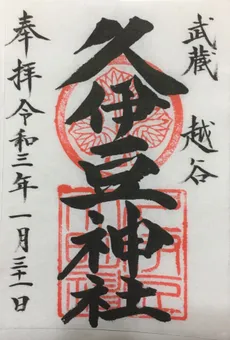 武蔵 越谷
久伊豆神社
奉拝令和三年一月三十一日